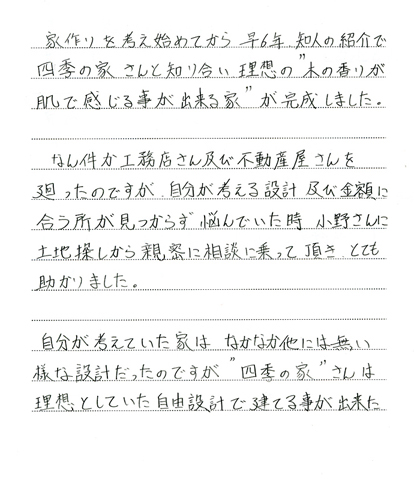 家作りを考え始めてから早6年、知人の紹介で
四季の家さんと知り合い理想の”木の香りが
肌で感じる事が出来る家”が完成しました。
なん件か工務店さん及び不動産屋さんを
廻ったのですが、自分が考える設計及び金額に
合う所が見つからず悩んでいた時小野さんに
土地探しから親密に相談に乗って頂き、とても
助かりました。
自分が考えていた家はなかなか他には無い
様な設計だったのですが”四季の家”さんは
理想としていた自由設計で建てる事が出来た